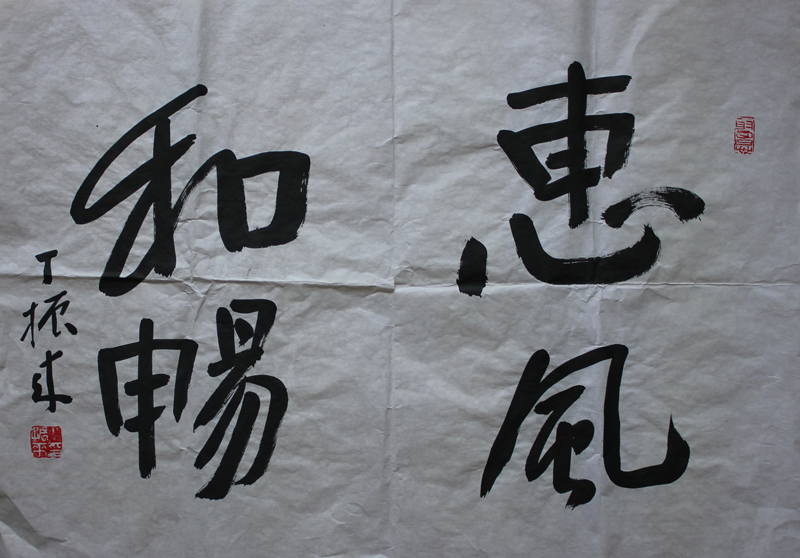 惠風
和暢
丁振来